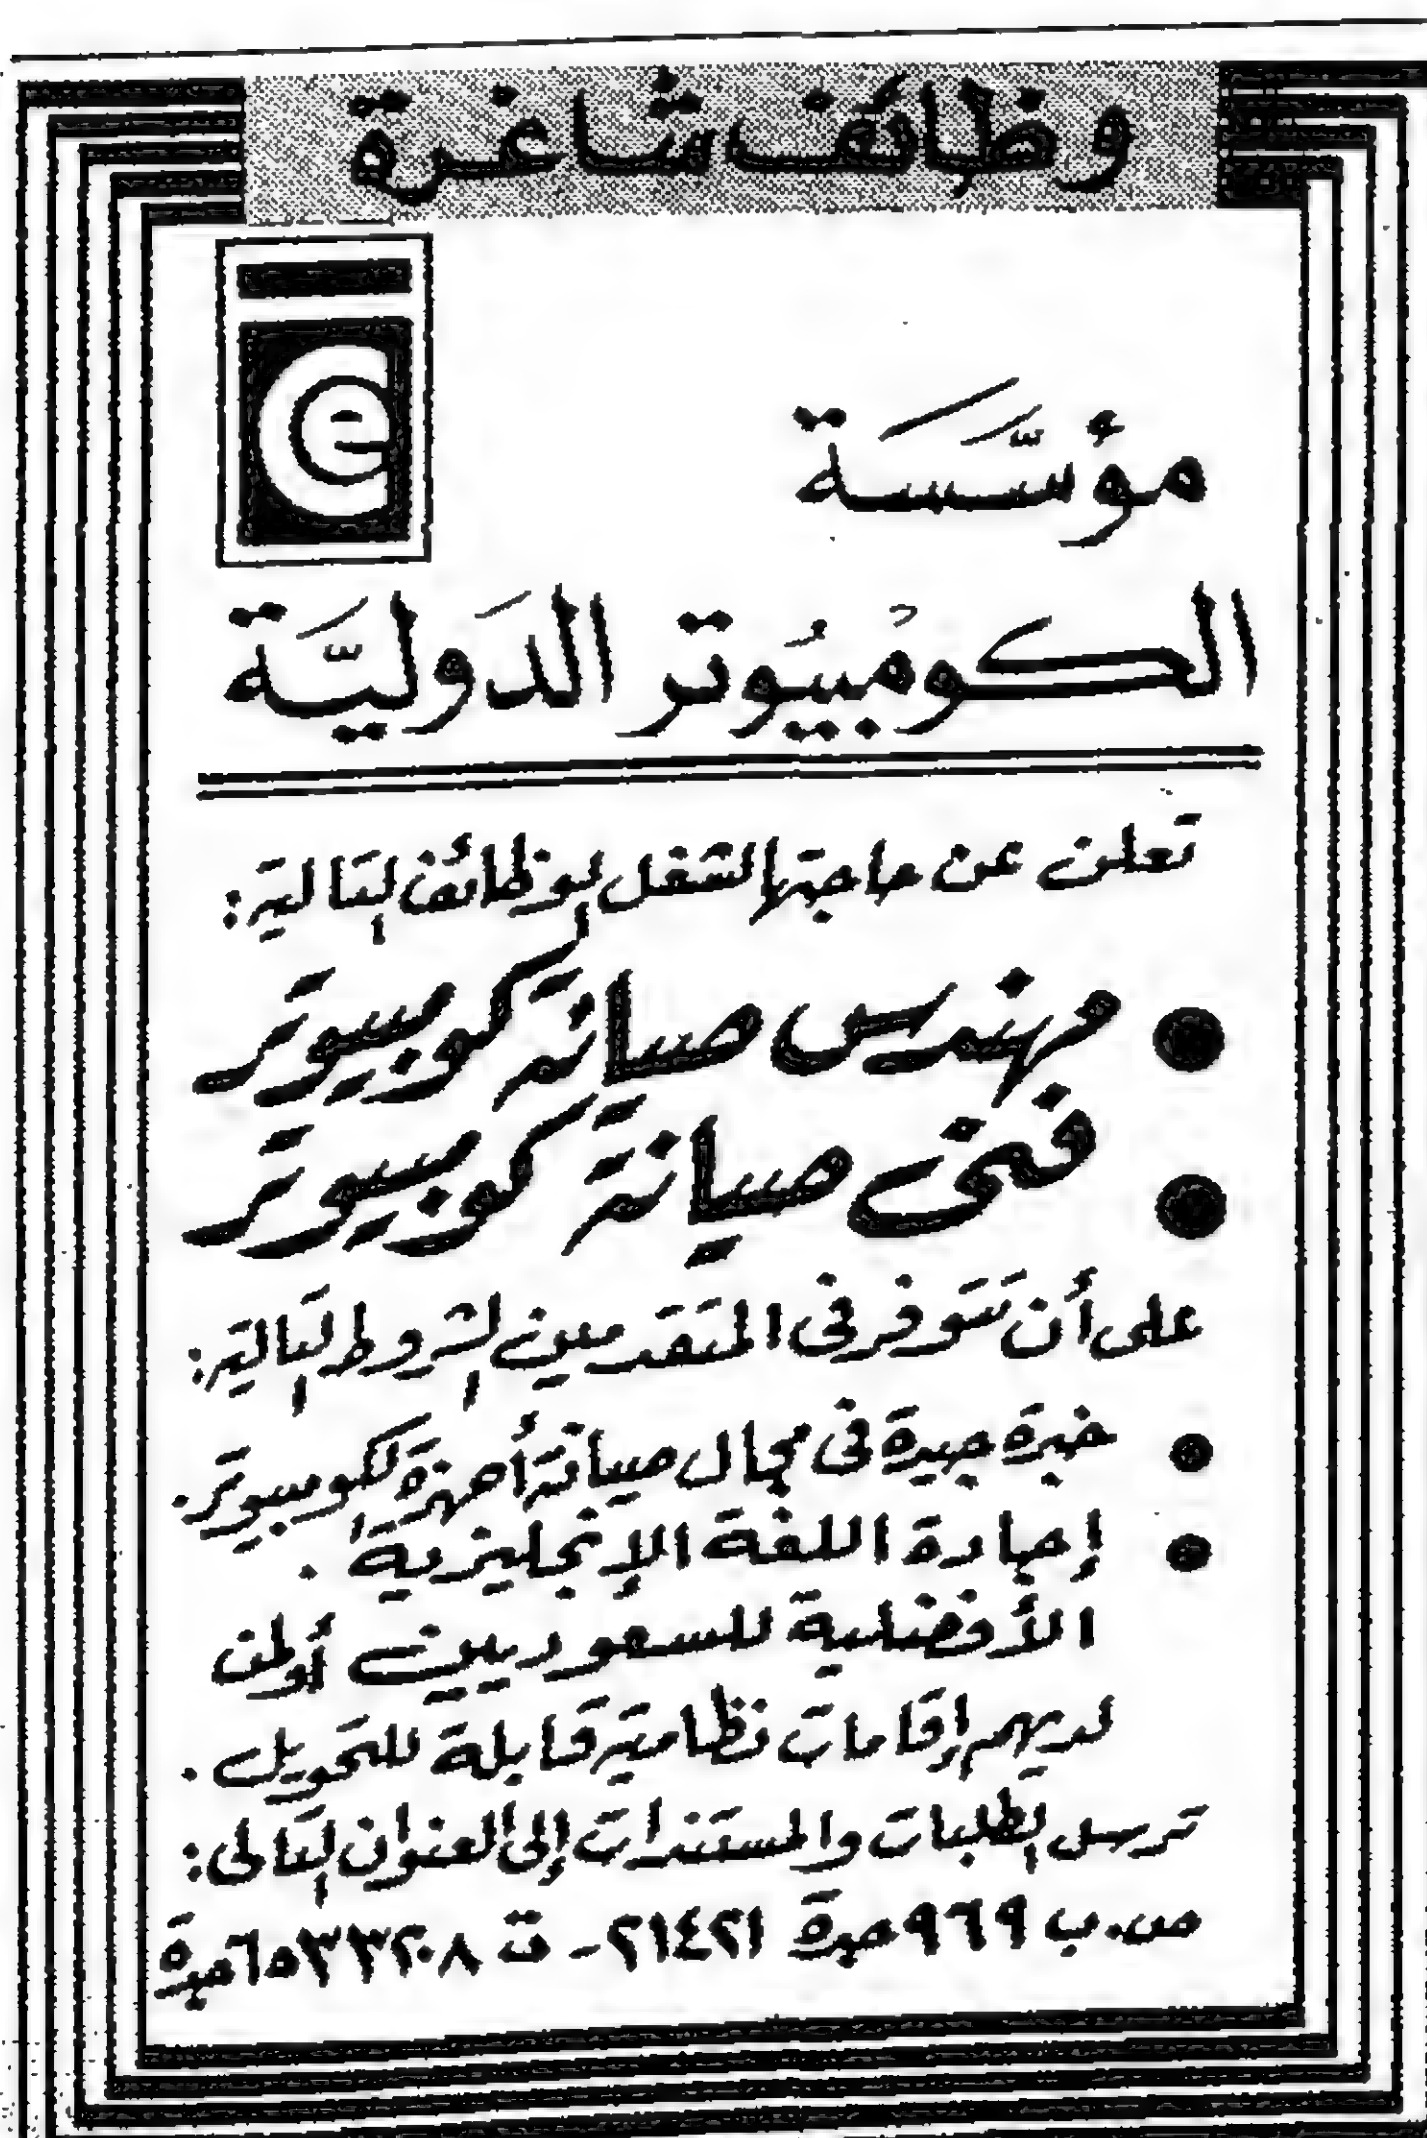 وظائف شاغرة
e
مؤسَّسَة
الكومْبيُوتر الدَوليَّة
تعلن عن حاجتها لشغل الوظائف التالية:
● مهندس صيانة كومبيوتر
● فني صيانة كومبيوتر
على أن تتوفر في المتقدمين الشروط التالية:
● خبرة جيدة في مجال صيانة أجهزة الكومبيوتر.
● إجادة اللغة الإنجليزية.
الأفضلية للسعوديين أولمن
لديهم إقامات نظامية قابلة للتحويل.
ترسل الطلبات والمستندات إلى العنوان التالي:
ص.ب ٩٦٩ جدة ٢١٤٢١ - ت ٦٥٣٣٢٠٨ جدة